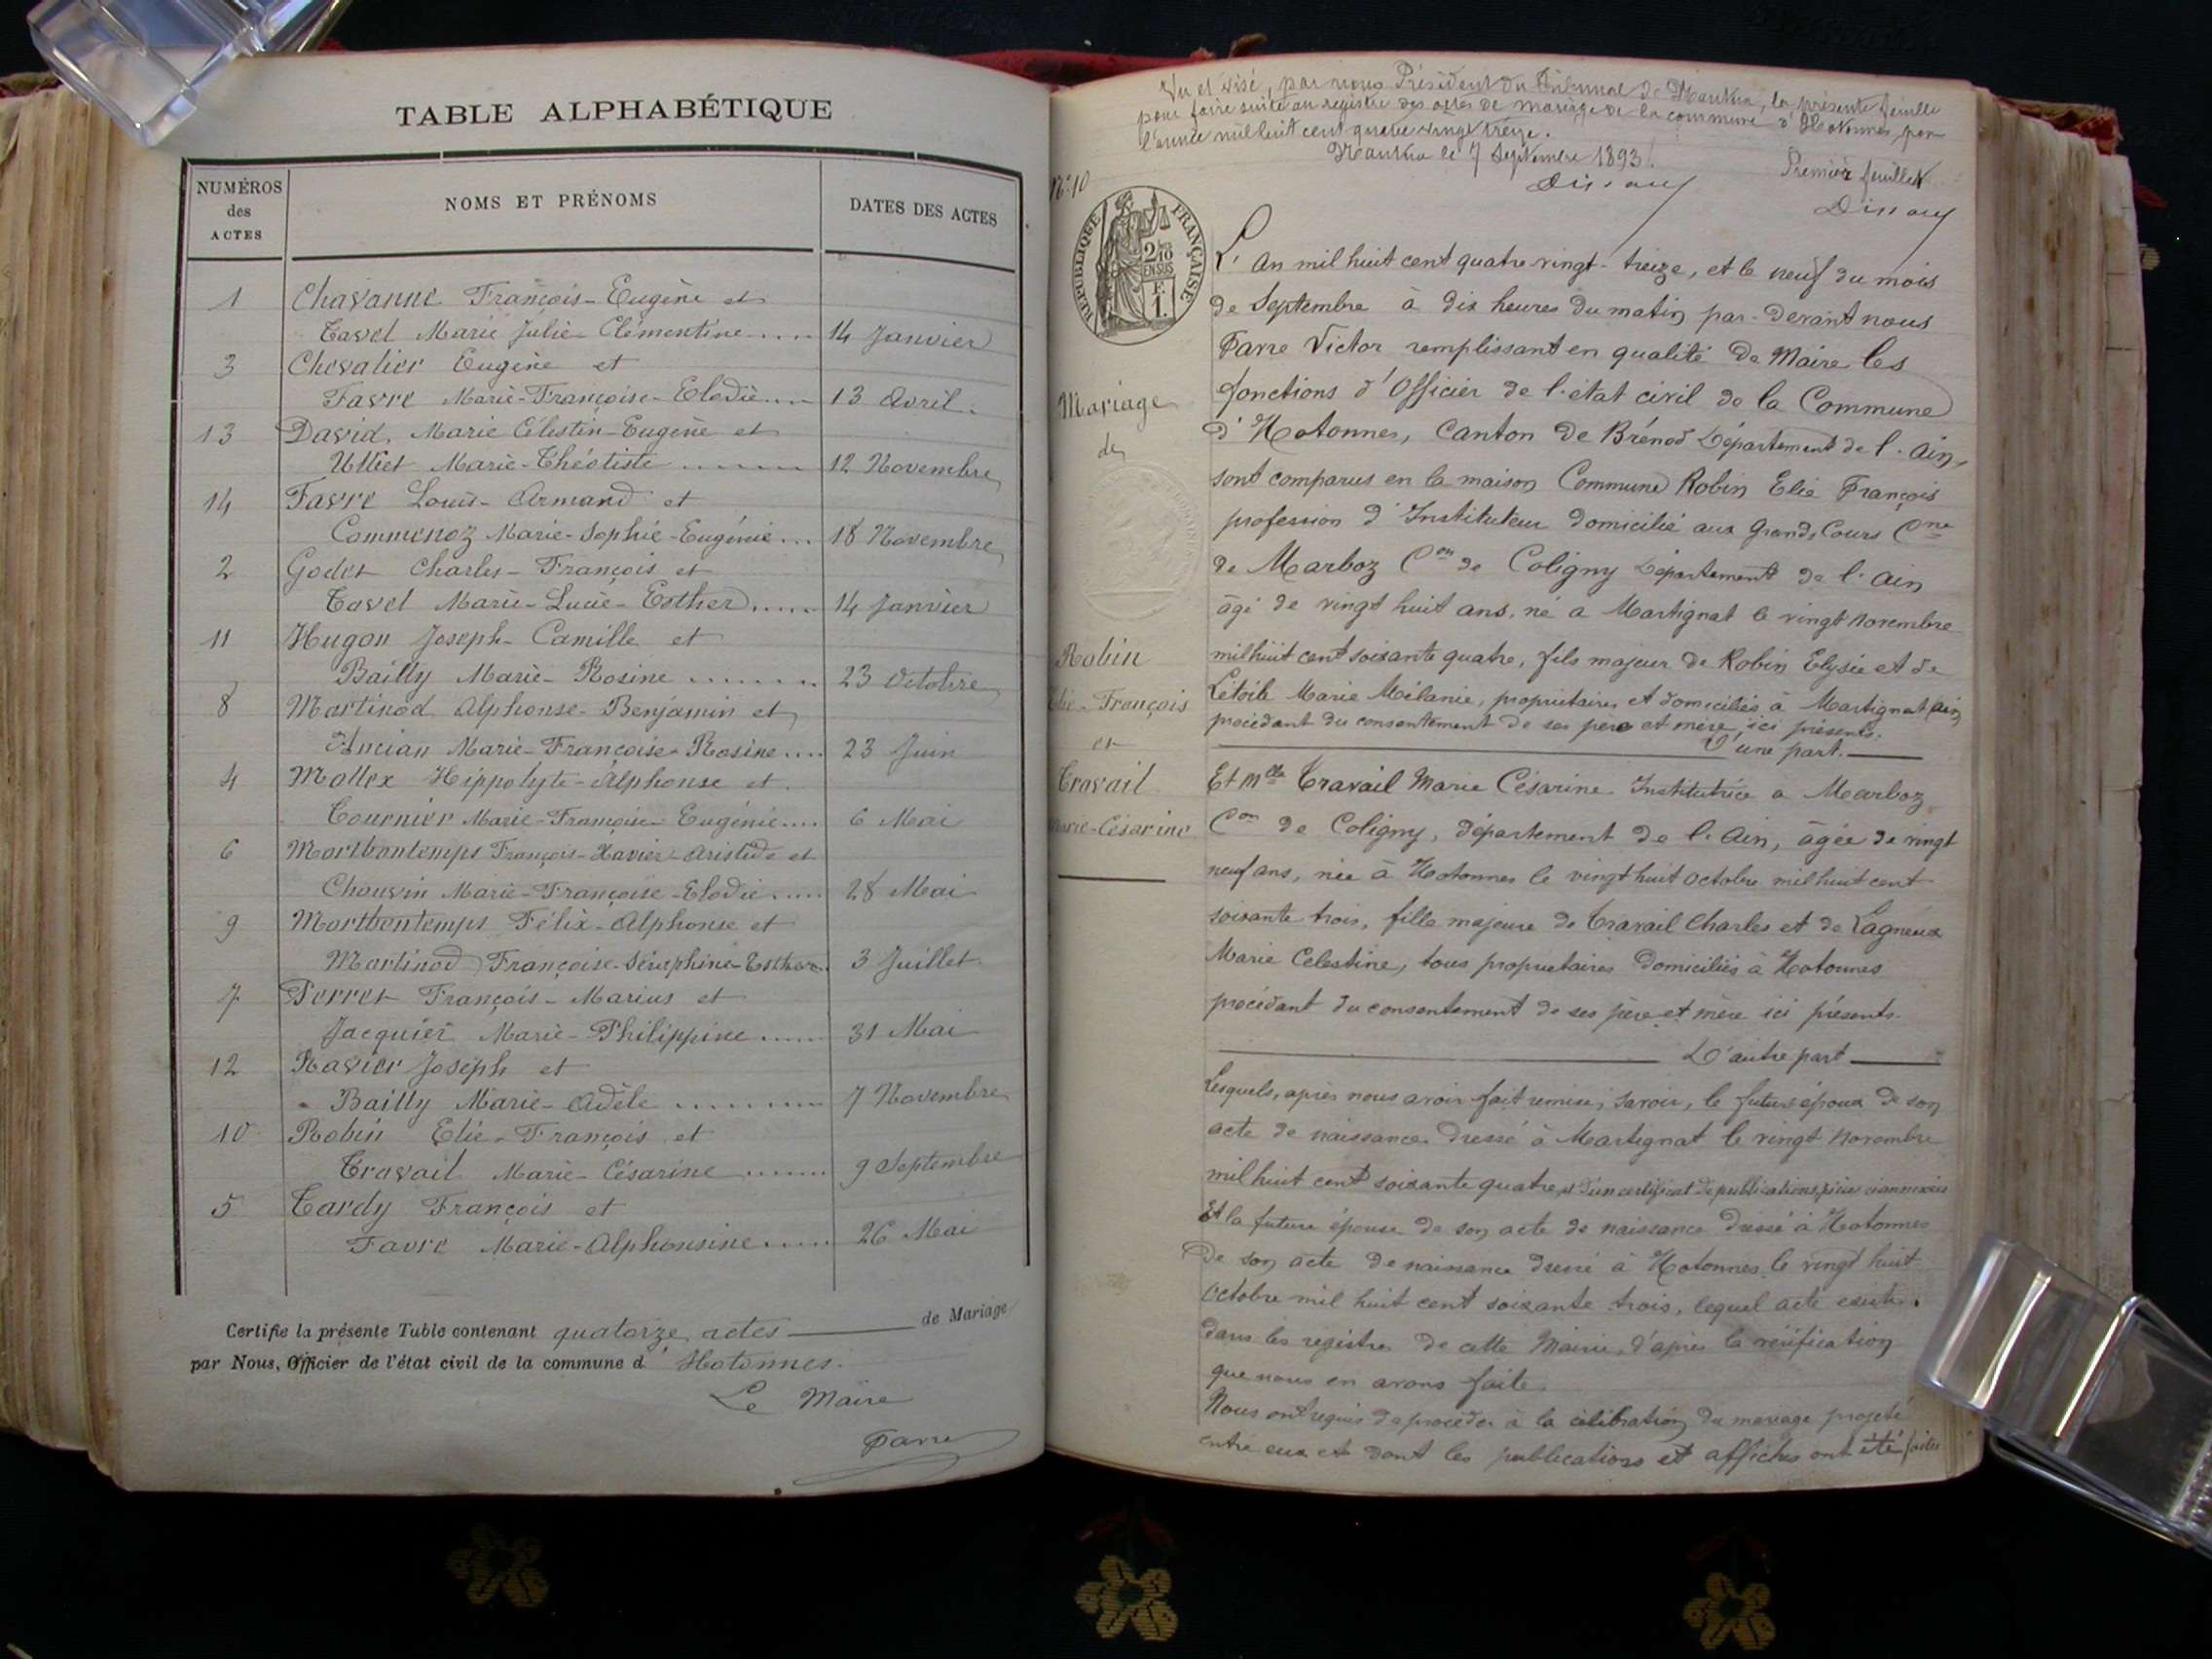 TABLE ALPHABÉTIQUE
NUMÉROS des ACTES
NOMS ET PRÉNOMS
DATES DES ACTES
1 Chavanne François-Eugène et
Tavel Marie Julie-Clémentine.... 14 Janvier
3 Chevalier Eugène et
Favre Marie-Françoise-Elodie.... 13 Avril.
13 David, Marie Célestin-Eugène et
Ulliet Marie-Théotiste ....... 12 Novembre
14 Favre Louis-Armand et
Commenoz Marie-Sophie-Eugénie... 18 Novembre
2 Godet Charles-François et
Tavel Marie-Lucie-Esther..... 14 Janvier
11 Hugon Joseph-Camille et
Bailly Marie-Rosine ....... 23 Octobre
8 Martinod Alphonse-Benjamin et
Ancian Marie-Françoise-Rosine.... 23 Juin
4 Mollex Hippolyte-Alphonse et.
Tournier Marie-Françoise-Eugénie.... 6 Mai
6 Mortbontemps François-Xavier-Aristide et
Chouvin Marie-Françoise-Elodie..... 28 Mai
9 Mortbontemps Félix-Alphonse et
Martinod Françoise-Séraphine-Esther. 3 Juillet.
7 Perret François-Marius et
Jacquier Marie-Philippine...... 31 Mai
12 Ravier Joseph et
Bailly Marie-Adèle ......... 7 Novembre
10 Robin Elie-François et
Travail Marie-Césarine ...... 9 Septembre
5 Tardy François et
Favre Marie-Alphonsine..... 26 Mai
Certifie la présente Table contenant quatorze actes de Mariage
par Nous, Officier de l'état civil de la commune d'Hotonnes.
Le Maire
Favre
Vu et visé, par nous Président du Tribunal de Nantua, la présente feuille
pour faire suite au registre des actes de mariage de la commune d'Hotonnes, pour
l'année mil huit cent quatre vingt treize.
Nantua le 7 Septembre 1893.
Premier feuillet
N° 10
RÉPUBLIQUE FRANÇAISE
2/10 EN SUS
F. 1.
Mariage
de
Robin
Elie-François
et
Travail
Marie-Césarine
L'an mil huit cent quatre-vingt-treize, et le neuf du mois
de Septembre à dix heures du matin par-devant nous
Favre Victor remplissant en qualité de Maire les
fonctions d'Officier de l'état civil de la Commune
d'Hotonnes, Canton de Brénod Département de l'Ain,
sont comparus en la maison Commune Robin Elie François
profession d'Instituteur domicilié aux Grands Cours Cne
de Marboz Con de Coligny Département de l'Ain
âgé de vingt huit ans, né a Martignat le vingt Novembre
mil huit cent soixante quatre, fils majeur de Robin Elysée et de
Létoile Marie Mélanie, propriétaires et domiciliés à Martignat (Ain)
procédant du consentement de ses père et mère, ici présents.
D'une part.
Et Mlle Travail Marie Césarine Institutrice a Marboz
Con de Coligny, département de l'Ain, âgée de vingt
neuf ans, née à Hotonnes le vingt huit octobre mil huit cent
soixante trois, fille majeure de Travail Charles et de Lagneux
Marie Celestine, tous propriétaires domiciliés à Hotonnes
procédant du consentement de ses père et mère ici présents.
D'autre part
Lesquels, après nous avoir fait remise, savoir, le futur époux de son
acte de naissance dressé à Martignat le vingt Novembre
mil huit cent soixante quatre, et d'un certificat de publications, pièces ci annexées
Et la future épouse de son acte de naissance dressé à Hotonnes
de son acte de naissance dressé à Hotonnes le vingt huit
Octobre mil huit cent soixante trois, lequel acte existe
dans les registres de cette Mairie, d'après la vérification
que nous en avons faite.
Nous ont requis de procéder à la célébration du mariage projeté
entre eux et dont les publications et affiches ont été faites